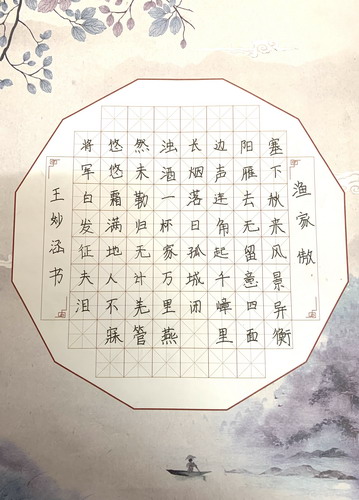 渔家傲
塞下秋来风景异衡
阳雁去无留意四面
边声连角起千嶂里
长烟落日孤城闭
浊酒一杯家万里燕
然未勒归无计羌管
悠悠霜满地人不寐
将军白发征夫泪
王妙涵书